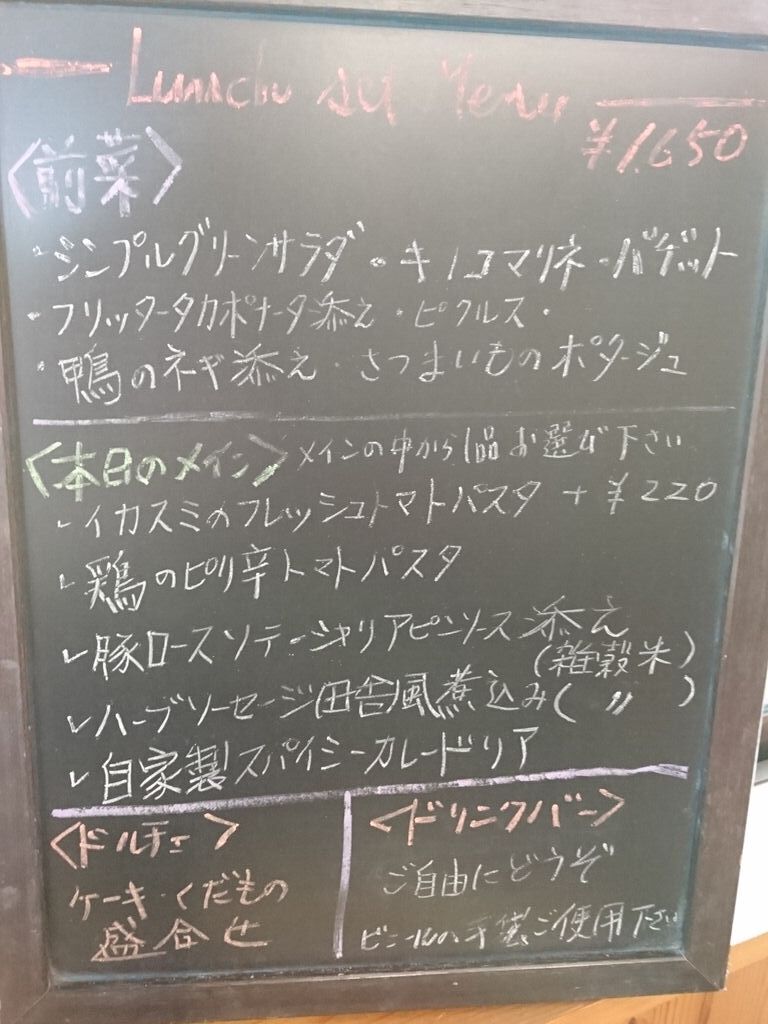 Lunch set Menu
¥1,650
〈前菜〉
・シンプルグリーンサラダ・キノコマリネ・バゲット
・フリッタータカポナータ添え・ピクルス・
・鴨のネギ添え・さつまいものポタージュ
〈本日のメイン〉メインの中から1品お選び下さい
✓イカスミのフレッシュトマトパスタ +¥220
✓鶏のピリ辛トマトパスタ
✓豚ロースソテーシャリアピンソース添え
(雑穀米)
✓ハーブソーセージ田舎風煮込み(〃)
✓自家製スパイシーカレードリア
〈ドルチェ〉
ケーキ・くだもの
盛合せ
〈ドリンクバー〉
ご自由にどうぞ
ビニールの手袋ご使用下さい